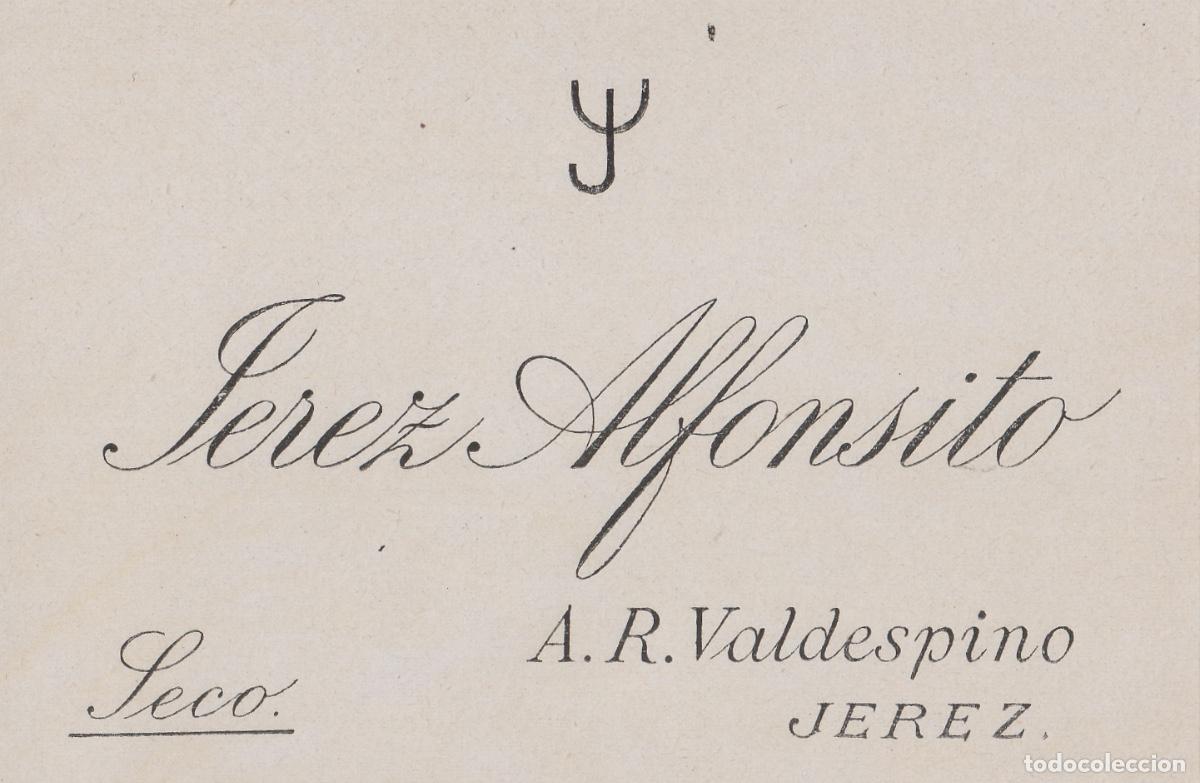 Jerez Alfonsito
A. R. Valdespino
JEREZ.
Seco.
todocoleccion